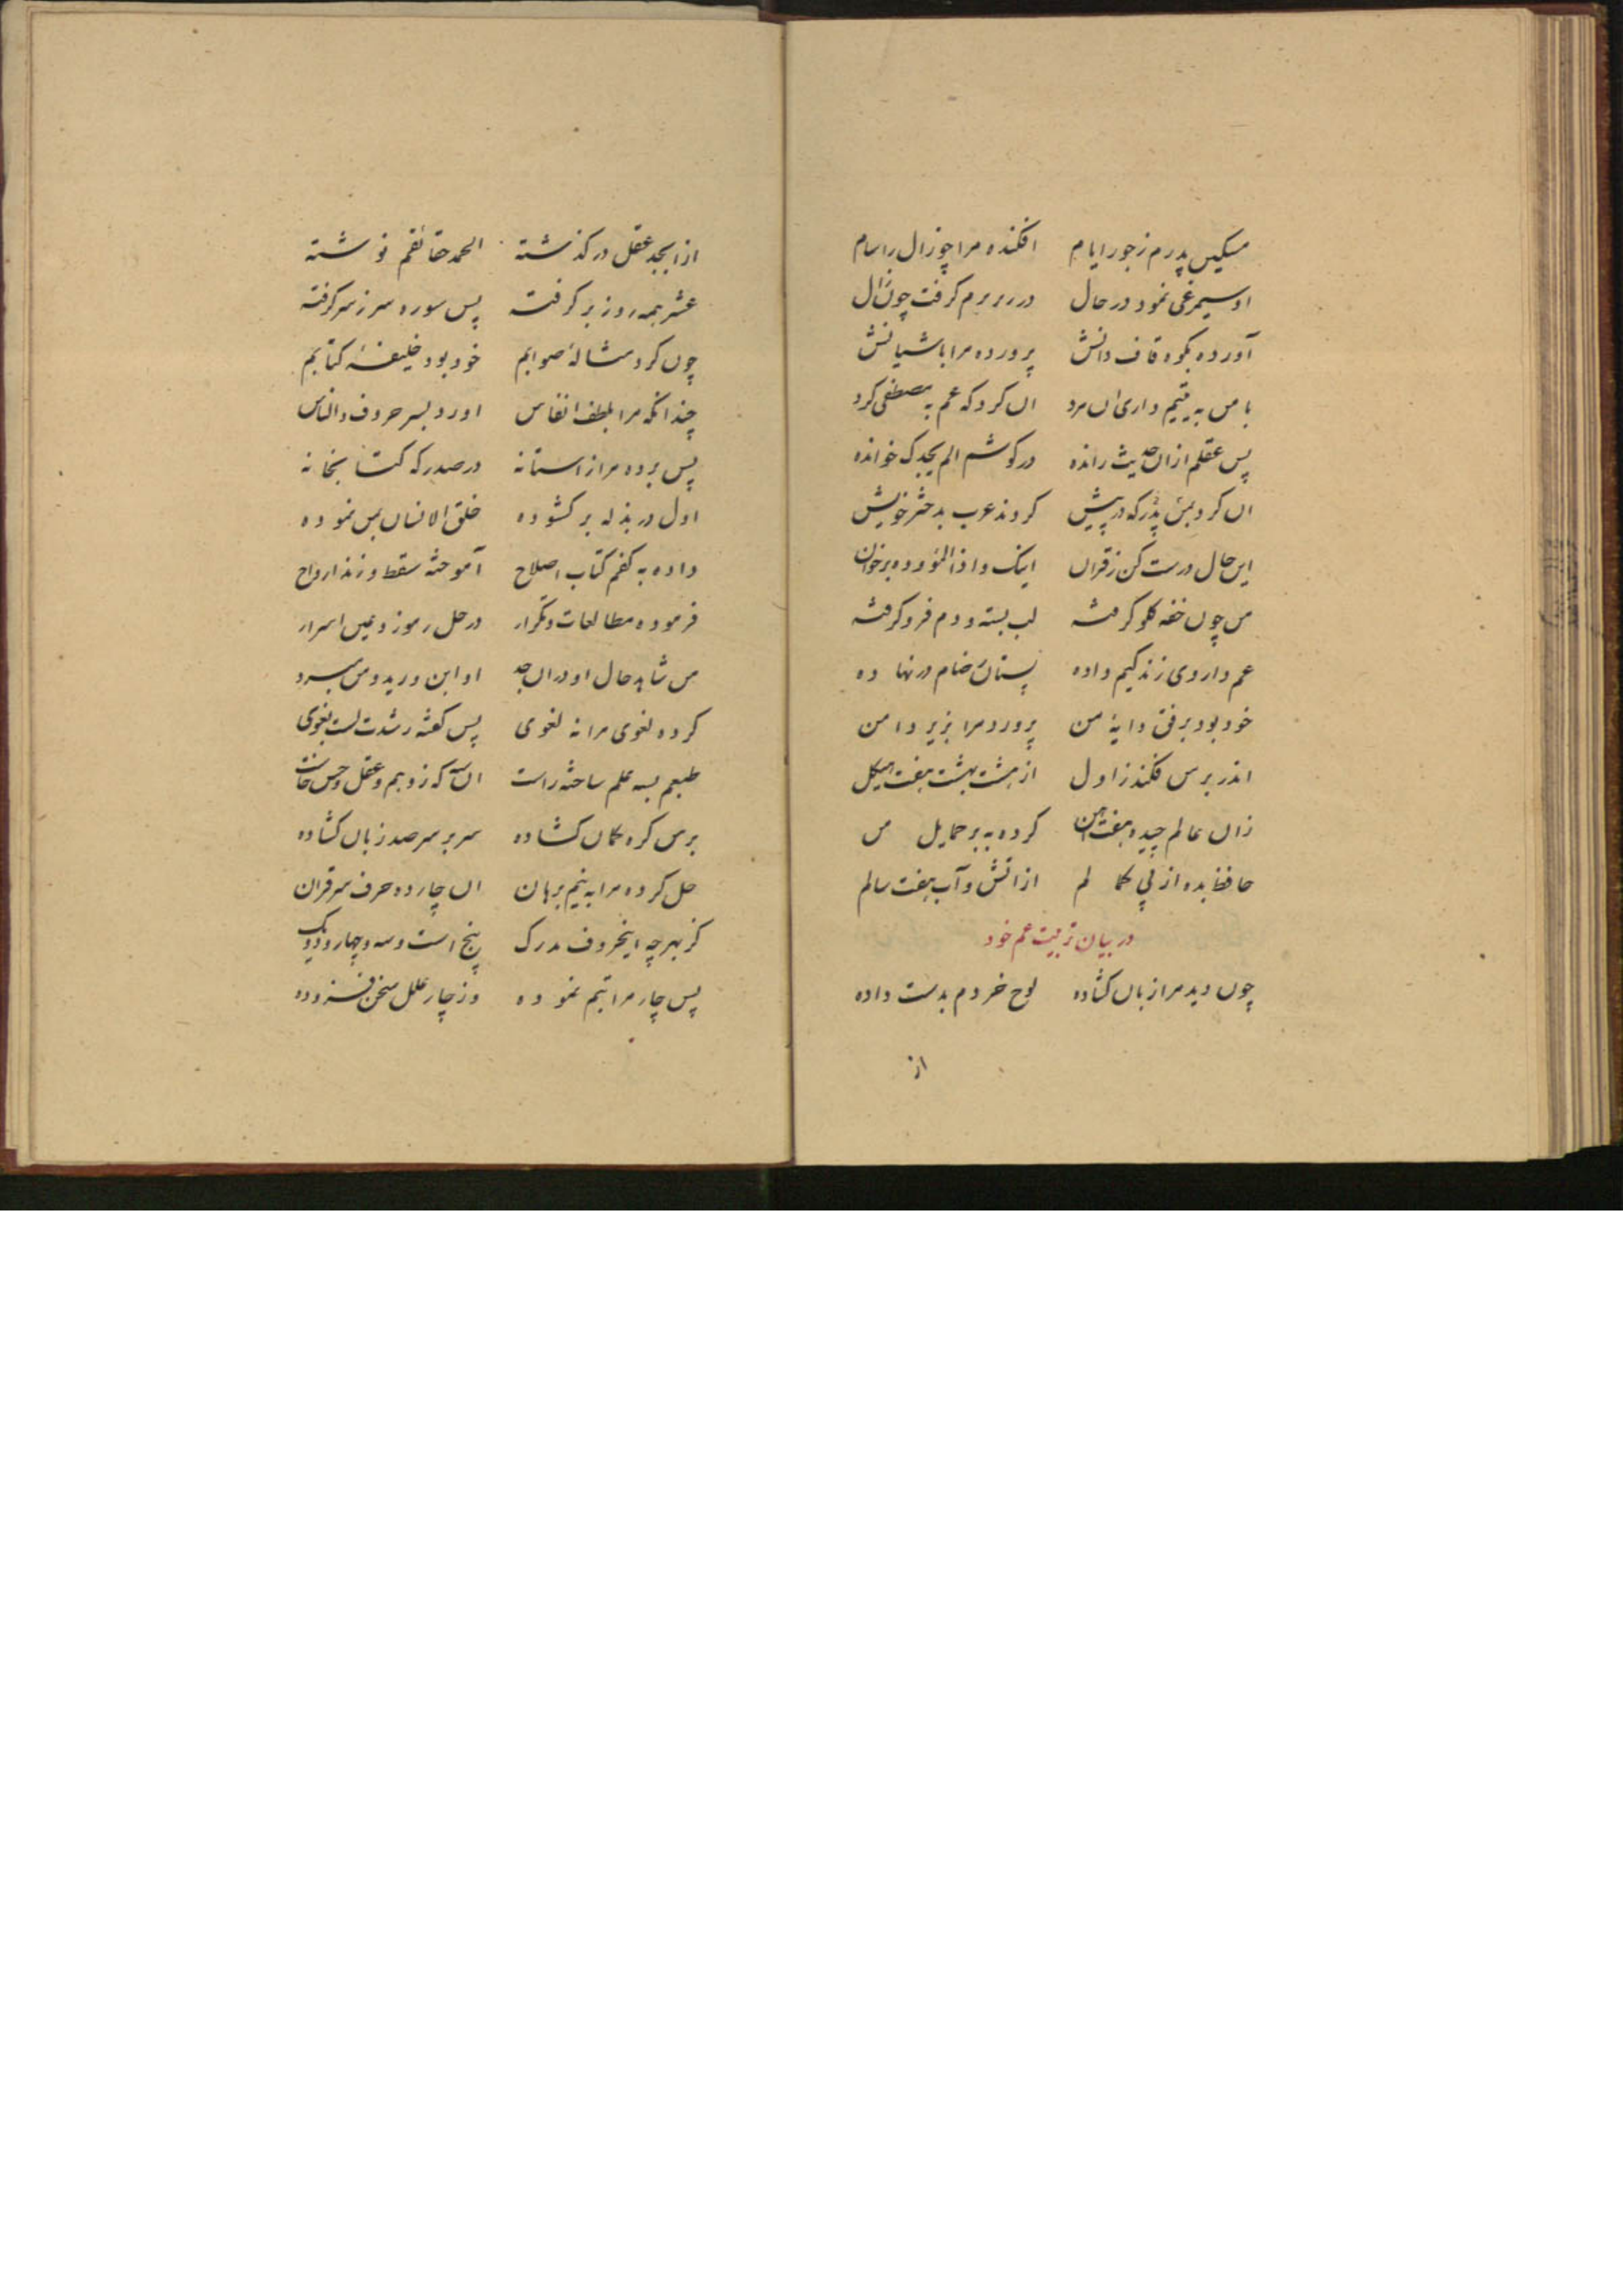 مسکیں پدرم زجور ایام افکنده مرا چو زال را سام
او سیمرغی نمود در حال در زیر پرم گرفت چون زال
آورده بکوه قاف دانش پرورده مرا باشیانش
با من به یتیم داری آں مرد آں کرد که عم به مصطفی کرد
پس عقلم ازاں حدیث رانده در گوشم الم یجدک خوانده
آں کرد بمن پدر که در پیش کردند عرب بدختر خویش
ایں حال درست کن ز قرآں اینک واذا الموؤده برخوان
من چوں خفه گلو گرفته لب بسته و دم فرو گرفته
عم داروی زندگیم داده پستان رضام در نهاده
خود بود برفق دایهٔ من پرورد مرا بزیر دامن
اندر بر من فکند ز اول از هشت بهشت هفت هیکل
زاں عالم چیده هفت کرده به بر حمایل من
حافظ بده از پی کمالم از آتش و آب هفت سالم
در بیان تربیت عم خود
چوں دید مرا زباں کشاده لوح خردم بدست داده
از
از ابجد عقل در گذشته الحمد حقائقم نوشته
عشر همه روز بر گرفته پس سوره سر ز سر گرفته
چوں کرد مثالهٔ صوابم خود بود خلیفهٔ کتابم
چندانکه مرا بلطف انفاس آورد بسر حروف والناس
پس برده مرا ز آستانه در صدر که کتابخانه
اول در بذله بر کشوده خلق الانسان بمن نموده
داده به کفم کتاب اصلاح آموخته سقط و زند ارواح
فرموده مطالعات و تکرار در حل رموز و عین اسرار
من شاهد حال او دراں جد او ابن ورید و من مبرد
کرده لغوی مرا نه لغوی پس گفته رشدت لست بغوی
طبعم بسه علم ساخته راست آں سه که ز وهم و عقل و حس خاست
بر من کره کماں کشاده سر بر سر صد زباں کشاده
حل کرده مرا به نیم برهان آں چارده حرف سر قرآن
کز بهر چه اینحروف مدرک پنج است و سه و چهار و دو یک
پس چار مراتبم نموده وز چار علل سخن فزوده